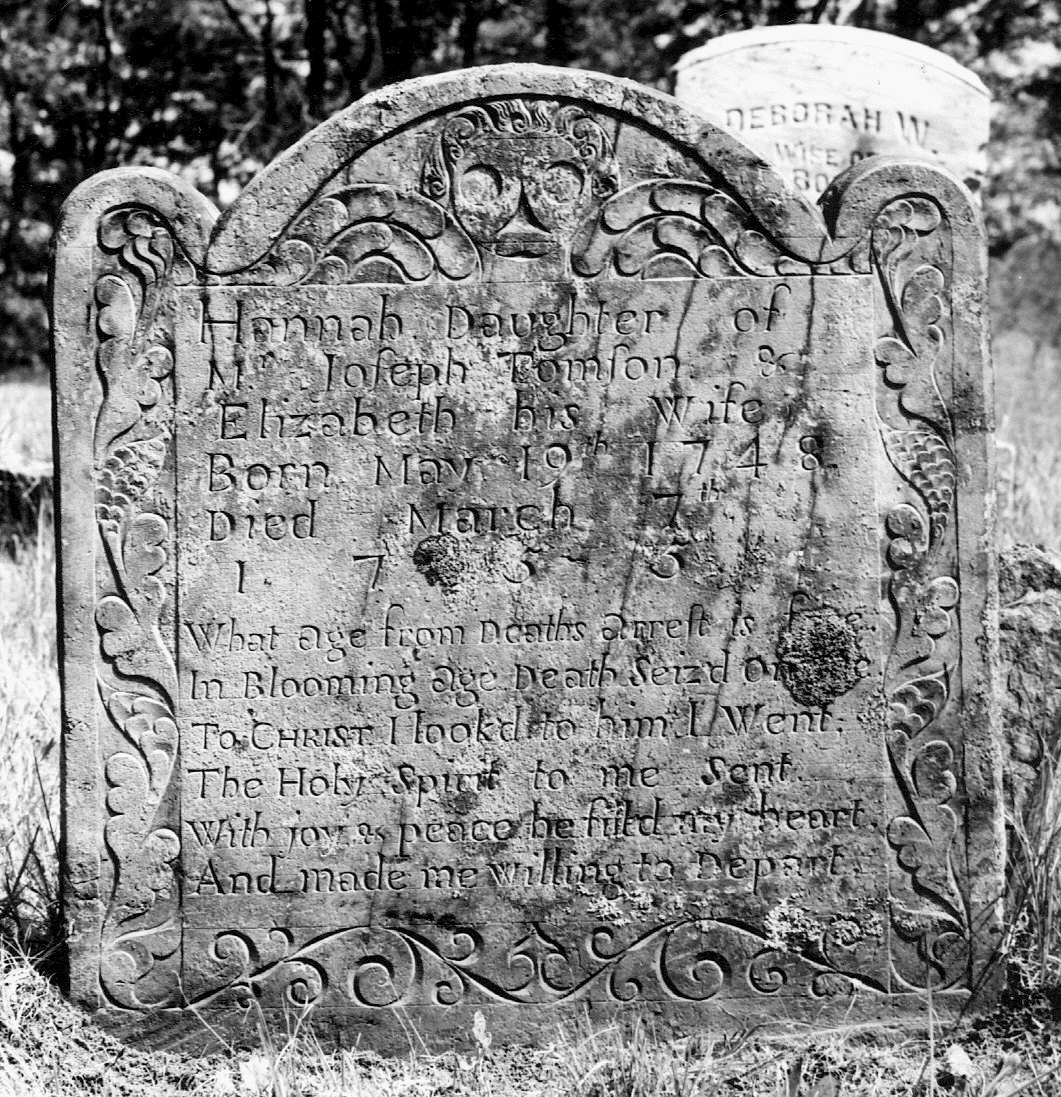 DEBORAH W.
WIFE OF
Hannah Daughter of
Mr Joſeph Tomſon &
Elizabeth his Wife
Born May 19th 1748
Died March 7th
1 7 5 5
What age from Deaths arreſt is
In Blooming age Death Seiz'd on
To CHRIST I look'd to him I Went.
The Holy Spirit to me Sent.
With joy & peace he fill'd my heart.
And made me willing to Depart.